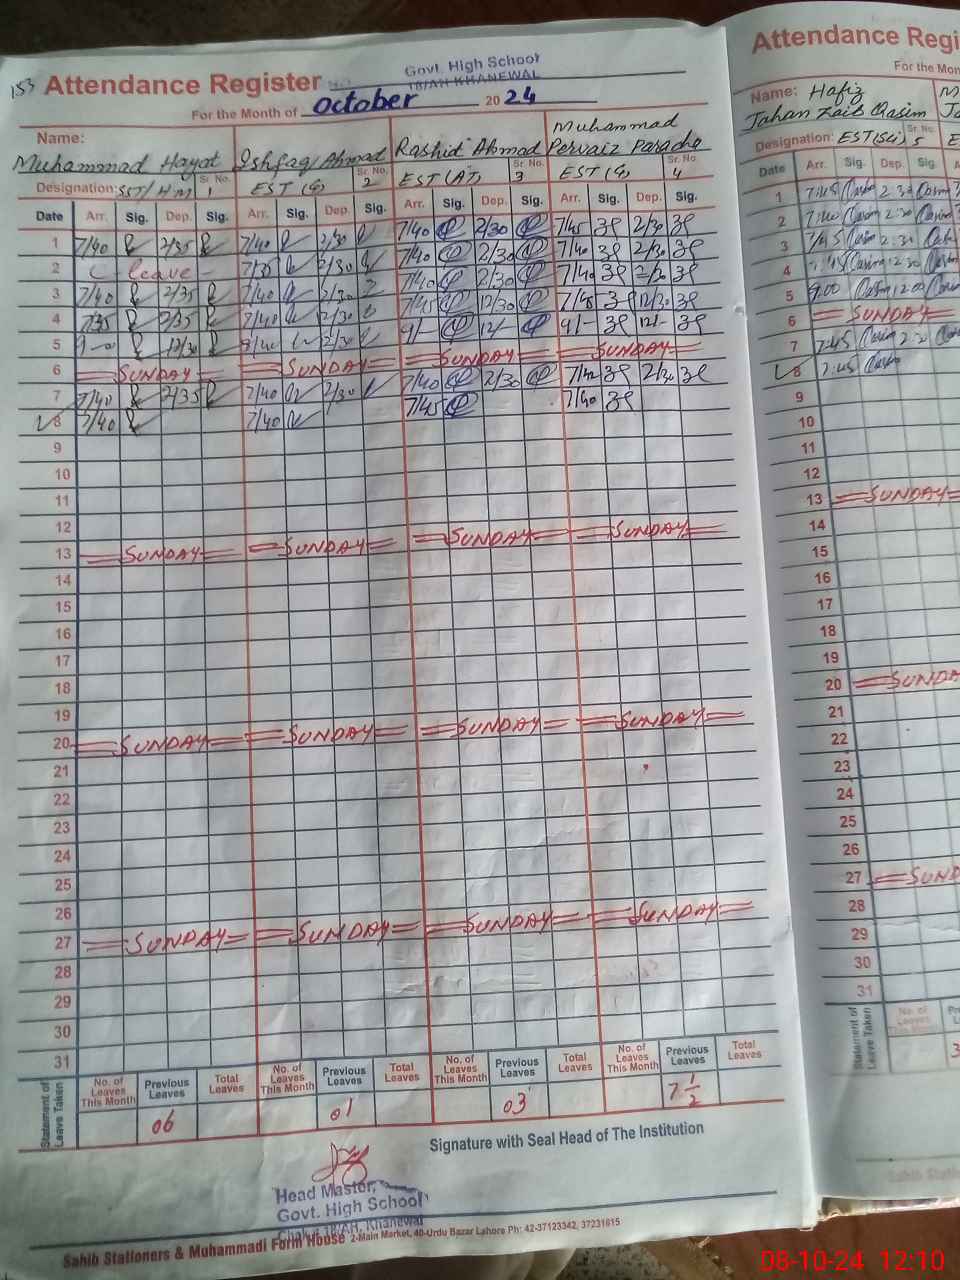 153 Attendance Register No.1
Govt. High School
18/AH KHANEWAL
For the Month of October 2024
Name:
Muhammad Hayat Ishfaq Ahmad Rashid Ahmad Muhammad Pervaiz Paracha
Designation: SST/HM Sr. No. 1 EST (G) Sr. No. 2 EST (AT) Sr. No. 3 EST (G) Sr. No. 4
Date Arr. Sig. Dep. Sig. Arr. Sig. Dep. Sig. Arr. Sig. Dep. Sig. Arr. Sig. Dep. Sig.
1 7/40 2/35 7/40 2/30 7/40 2/30 7/45 2/30
2 leave 7/35 2/30 7/40 2/30 7/40 2/30
3 7/40 2/35 7/40 2/30 7/40 2/30 7/40 2/30
4 7/35 2/35 7/40 12/30 7/45 12/30 7/45 12/30
5 12/30 9/- 12/- 9/- 12/-
6 SUNDAY SUNDAY SUNDAY SUNDAY
7 7/40 2/35 7/40 2/30 7/40 2/30 2/30
8 7/40 7/40 7/45 7/40
9
10
11
12
13 SUNDAY SUNDAY SUNDAY SUNDAY
14
15
16
17
18
19
20 SUNDAY SUNDAY SUNDAY SUNDAY
21
22
23
24
25
26
27 SUNDAY SUNDAY SUNDAY SUNDAY
28
29
30
31
Statement of Leave Taken
No. of Leaves This Month Previous Leaves Total Leaves No. of Leaves This Month Previous Leaves Total Leaves No. of Leaves This Month Previous Leaves Total Leaves No. of Leaves This Month Previous Leaves Total Leaves
06 01 03 7 1/2
Signature with Seal Head of The Institution
Head Master,
Govt. High School
Chak # 18/AH, Khanewal
Sahib Stationers & Muhammadi Form House 2-Main Market, 40-Urdu Bazar Lahore Ph: 42-37123342, 37231615
Attendance Regi
For the Mon
Name: Hafiz
Jahan Zaib Qasim
Designation: EST(Sci) Sr. No. 5
Date Arr. Sig. Dep. Sig.
1 7:45 2:30
2 7:40 2:30
3 7:45 2:30
4 7:45 12:30
5 9:00 12:00
6 SUNDAY
7 7:45 2:30
8 7:45
9
10
11
12
13 SUNDAY
14
15
16
17
18
19
20 SUNDA
21
22
23
24
25
26
27 SUND
28
29
30
31
Statement of Leave Taken
No. of Leaves This Month
Sahib Statio
08-10-24 12:10